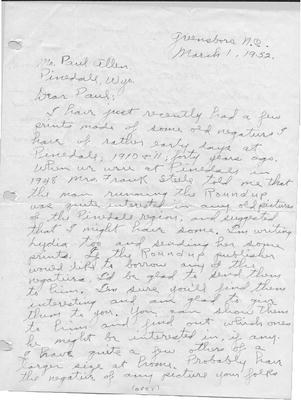 Greensboro N.C.
March 1, 1952.
Mr. Paul Allen
Pinedale, Wyo.
Dear Paul:
I have just recently had a few
prints made of some old negatives I
have of rather early days at
Pinedale, 1910 & 11, forty years ago.
When we were at Pinedale in
1948 Mrs. Frank Steele told me that
the man running the Roundup
was quite interested in any old pictures
of the Pinedale region, and suggested
that I might have some. I'm writing
Lydia too and sending her some
prints. If the Roundup publisher
would like to borrow any of the
negatives, I'd be glad to send them
to him. I'm sure you'll find them
interesting and am glad to give
them to you. You can show them
to him and find out which ones
he might be interested in, if any.
I have quite a few others of a
larger size at home. Probably have
the negative of any picture your folks
(over)